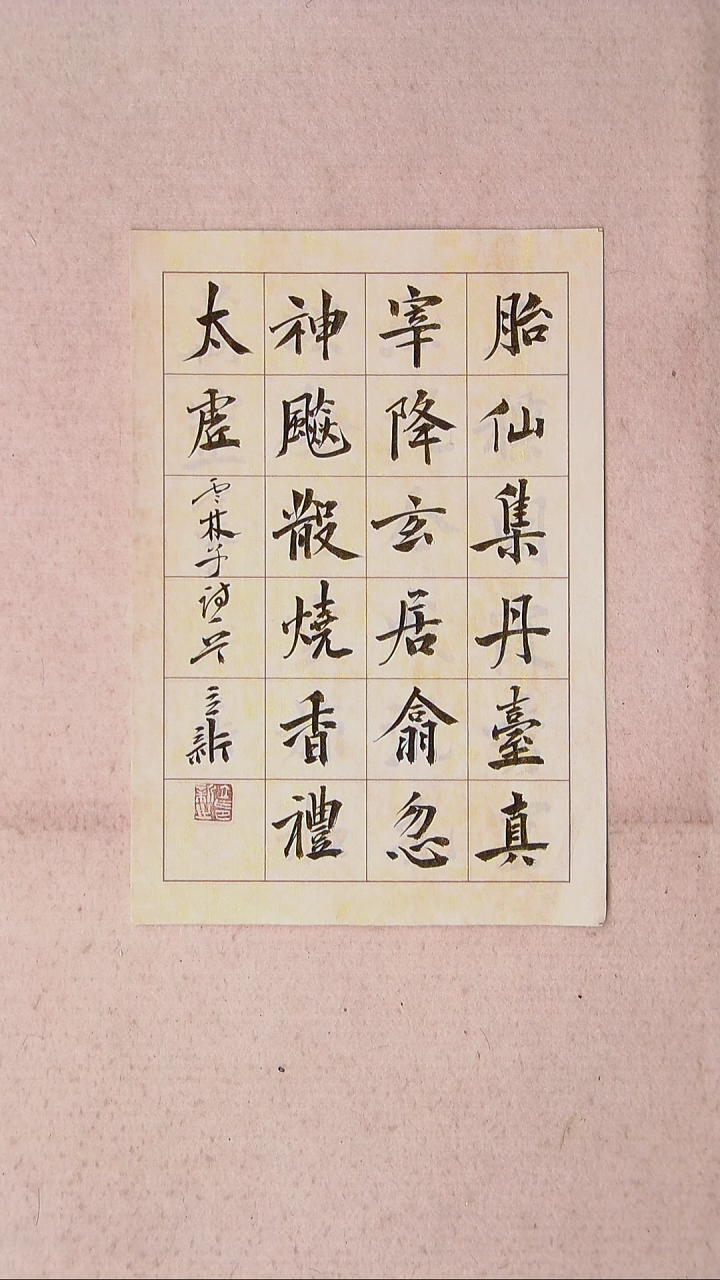 胎仙集丹臺真
宰降玄居翕忽
神飈散燒香禮
太虛雲林子詩一首立新